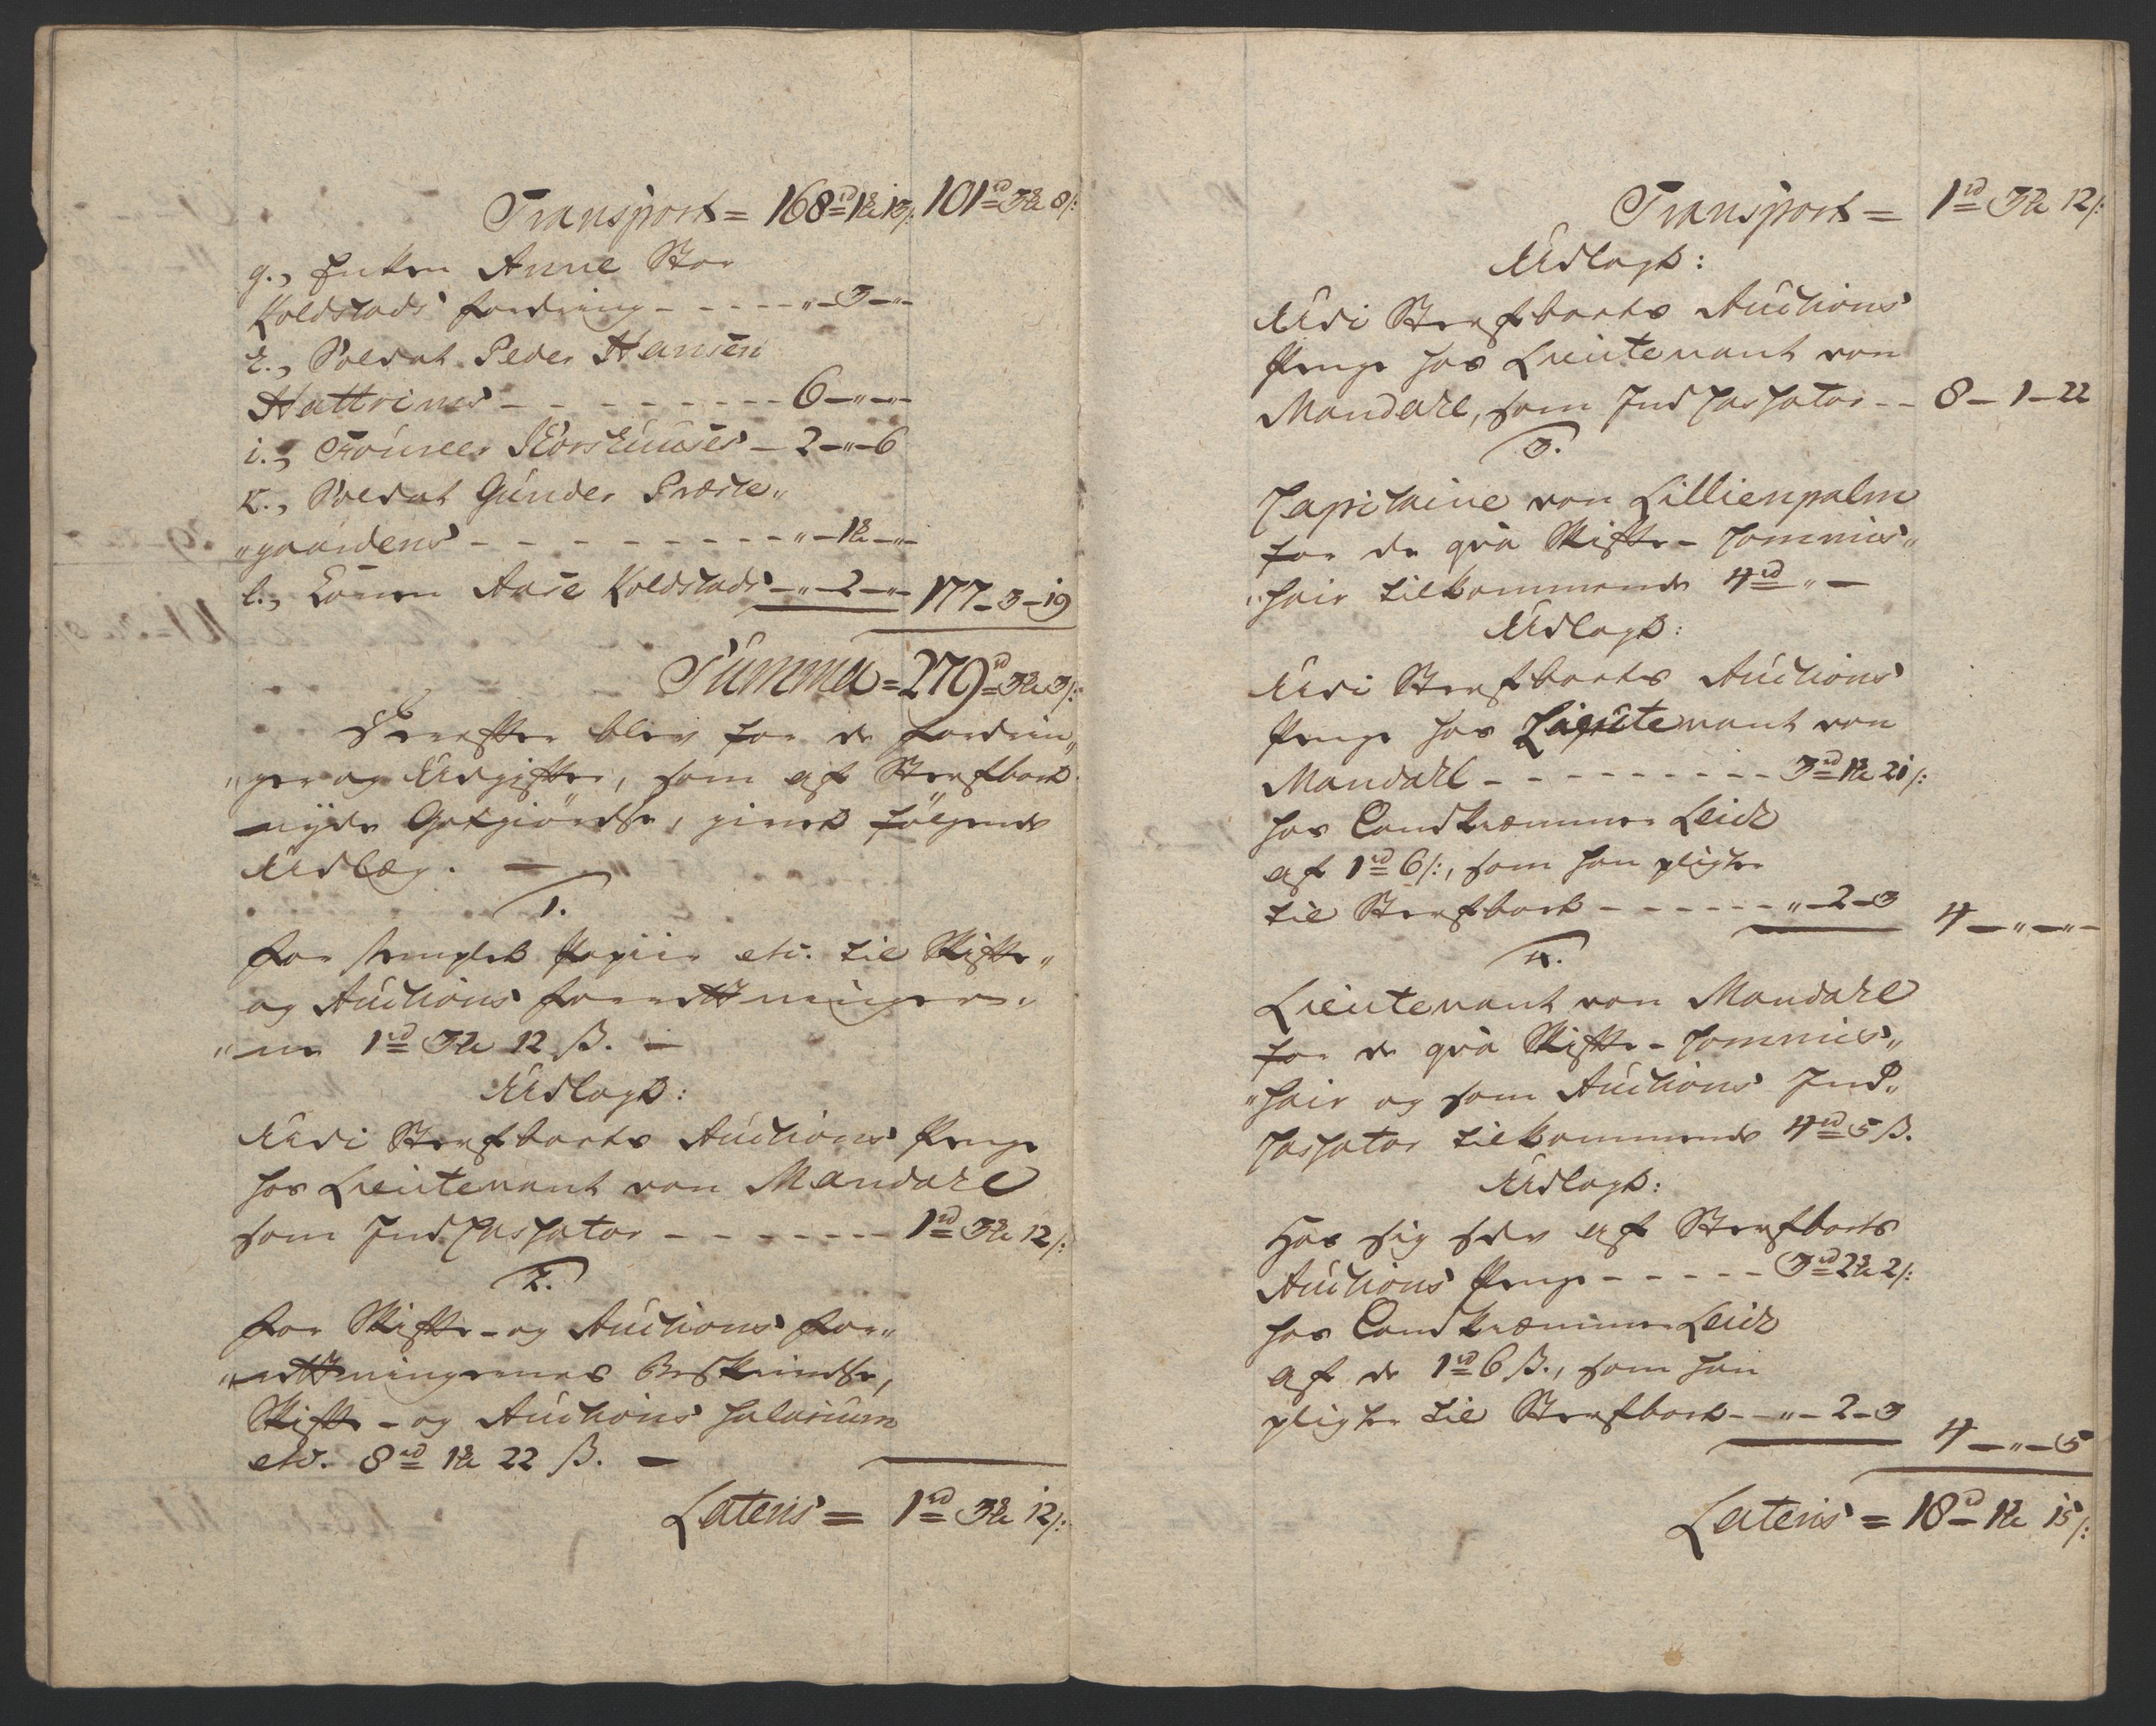 Transport = 168rd 1 13/: 101rd 3 8/:
g., Enken Anne Stor
Koldstads fordring - - - - „ - 3 - „ -
h., Soldat Peder Hansen
Hattrims - - - - - - - - - 6 - „ - „ -
i., Korskuuses - 2 - „ - 6
k., Soldat Gunder Præste„
„gaardens - - - - - - - - - „ - 1 - „ -
l., Konen Aase Koldstads - „ - 2 - „ - 177 - 3 - 19
Summa = 279rd 3 3/:
Derefter blev for de fordrin„
„ger og Udgifter, som af Sterfboet
nyde Godtgiörelse, giort følgende
Udlæg. —
1.
for stemplet Papiir etc. til Skifte„
og Auctions forrettninger„
„ne 1rd 3 12 ß. —
Udlagt:
Udi Sterfboets Auctions Penge
hos Lieutenant von Mandahl
som Indcassator - - - - - - - 1rd 3 12/:
2.
for Skifte- og Auctions for„
„rettningernes Beskrivelse,
Skifte- og Auctions Salarium
etc. 8rd 1 22 ß. —
Lateris = 1rd 3 12/:
Transport = 1rd 3 12/:
Udlagt:
Udi Sterfboets Auctions
Penge hos Lieutenant von
Mandahl, som Indcassator - - 8 - 1 - 22
3.
Capitaine von Lillienpalm
for de qvà Skifte-Commis„
„sair tilkommende 4rd „ —
Udlagt:
Udi Sterfboets Auctions
Penge hos Lieutenant von
Mandahl - - - - - - - - - 3rd 1 21/:
hos Landkræmmer Leich
af 1rd 6/:, som han pligter
til Sterfboet - - - - - - „ - 2 - 3 4 - „ - „ -
4.
Lieutenant von Mandahl
for de qvà Skifte-Commis„
„sair og som Auctions Ind„
cassator tilkommende 4rd 5 ß.
Udlagt:
Hos sig selv af Sterfboets
Auctions Penge - - - - - 3rd 2 2/:
hos Landkræmmer Leich
af de 1rd 6 ß., som han
pligter til Sterfboet - - „ - 2 - 3 4 - „ - 5
Lateris = 18rd 1 15/: